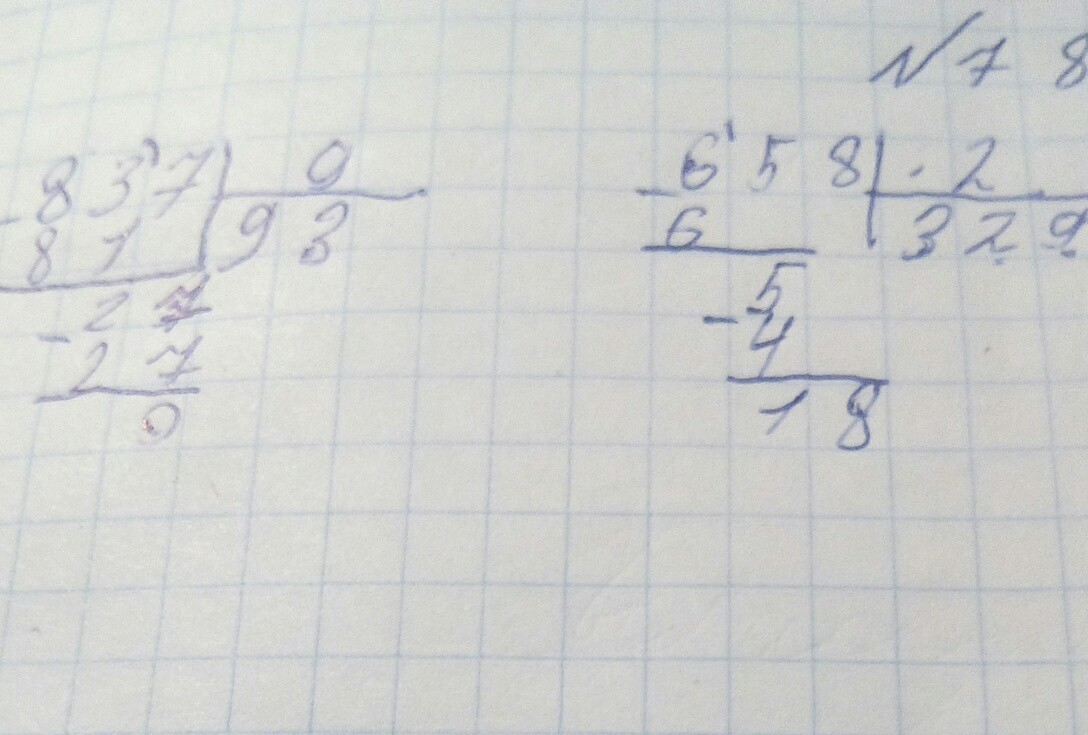 № 7 8
- 8 3 7 | 9
8 1 | 9 3
- 2 7
2 7
0
- 6 5 8 | 2
6 | 3 2 9
- 5
4
1 8